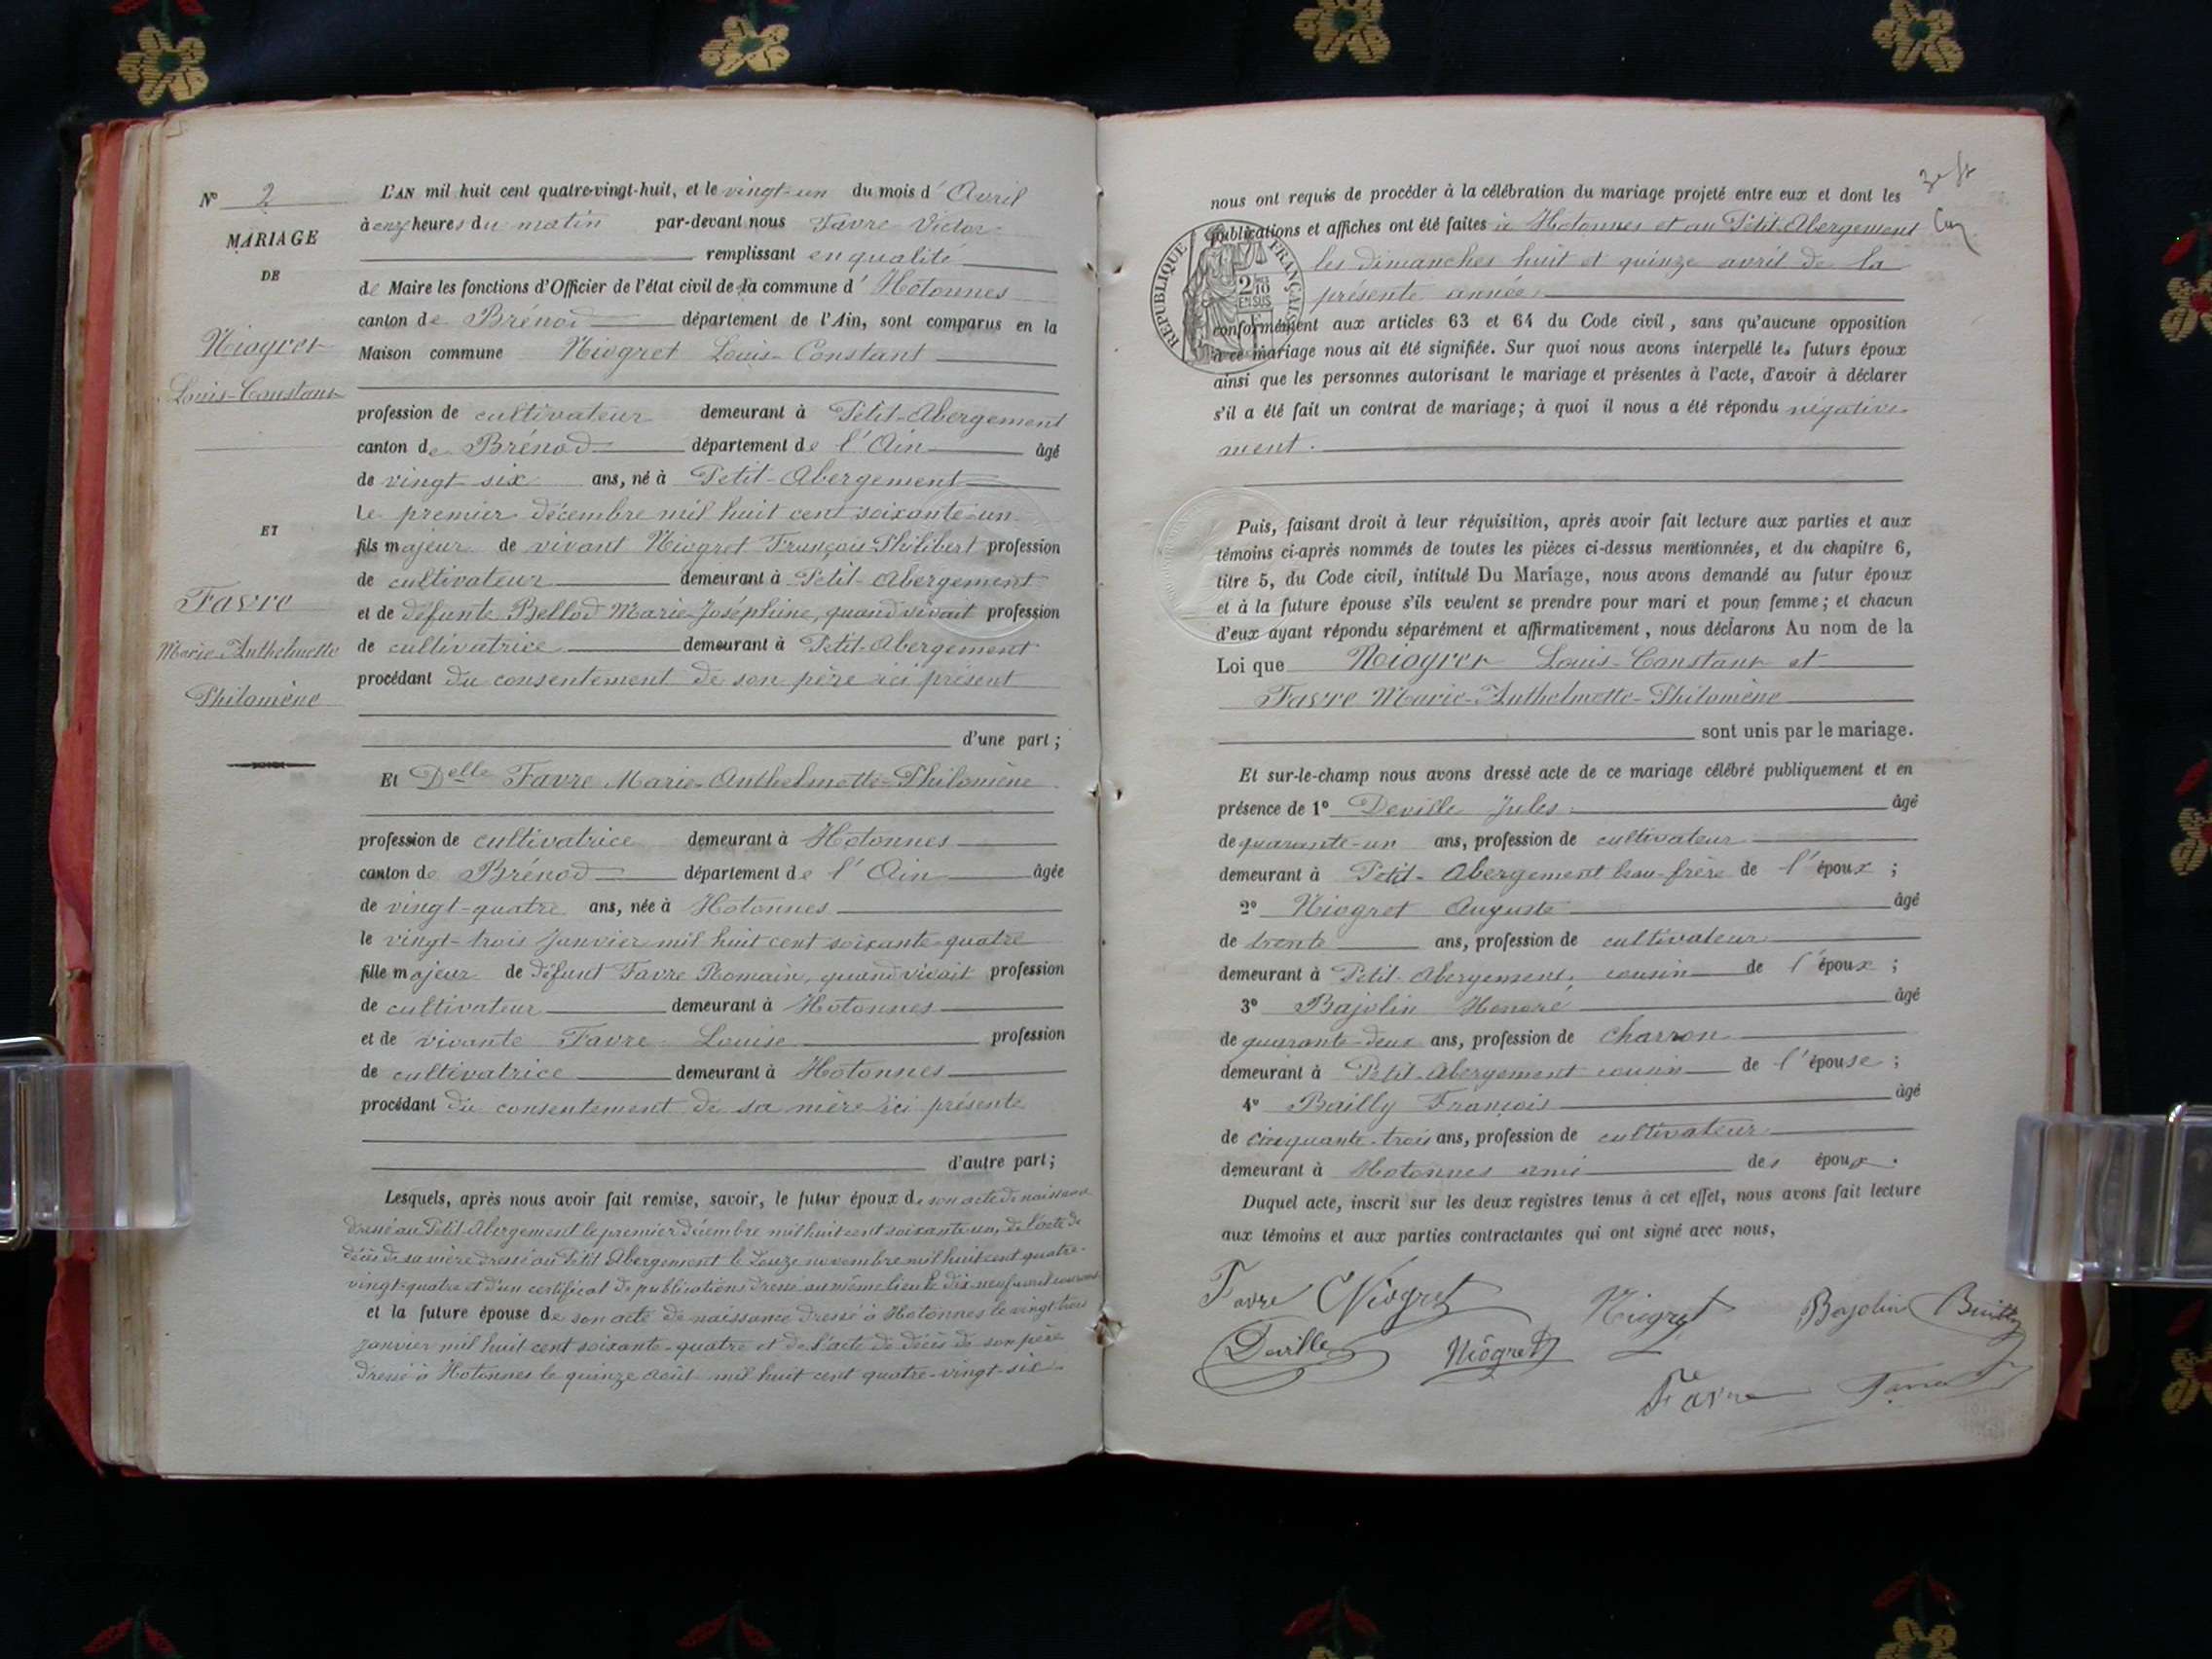 N° 2
MARIAGE
DE
Niogret
Louis-Constant
ET
Favre
Marie-Anthelmette
Philomène
L'AN mil huit cent quatre-vingt-huit, et le vingt-un du mois d'Avril
à onze heures du matin par-devant nous Favre Victor
remplissant en qualité
de Maire les fonctions d'Officier de l'état civil de la commune d'Hotonnes
canton de Brénod département de l'Ain, sont comparus en la
Maison commune Niogret Louis-Constant
profession de cultivateur demeurant à Petit-Abergement
canton de Brénod département de l'Ain âgé
de vingt six ans, né à Petit-Abergement
le premier décembre mil huit cent soixante-un
fils majeur de vivant Niogret François-Philibert profession
de cultivateur demeurant à Petit-Abergement
et de défunte Bellod Marie-Joséphine, quand vivait profession
de cultivatrice demeurant à Petit-Abergement
procédant du consentement de son père ici présent
d'une part ;
Et Delle Favre Marie-Anthelmette-Philomène
profession de cultivatrice demeurant à Hotonnes
canton de Brénod département de l'Ain âgée
de vingt-quatre ans, née à Hotonnes
le vingt-trois janvier mil huit cent soixante-quatre
fille majeur de défunt Favre Romain, quand vivait profession
de cultivateur demeurant à Hotonnes
et de vivante Favre Louise profession
de cultivatrice demeurant à Hotonnes
procédant du consentement de sa mère ici présente
d'autre part ;
Lesquels, après nous avoir fait remise, savoir, le futur époux de son acte de naissance
dressé au Petit Abergement le premier décembre mil huit cent soixante un, de l'acte de
décès de sa mère dressé au Petit Abergement le douze novembre mil huit cent quatre-
vingt-quatre et d'un certificat de publications dressé au même lieu le dix-neuf avril courant
et la future épouse de son acte de naissance dressé à Hotonnes le vingt-trois
janvier mil huit cent soixante-quatre et de l'acte de décès de son père
dressé à Hotonnes le quinze août mil huit cent quatre-vingt-six
nous ont requis de procéder à la célébration du mariage projeté entre eux et dont les
publications et affiches ont été faites à Hotonnes et au Petit-Abergement
les dimanches huit et quinze avril de la
présente année
RÉPUBLIQUE FRANÇAISE
2/10 EN SUS
conformément aux articles 63 et 64 du Code civil, sans qu'aucune opposition
à ce mariage nous ait été signifiée. Sur quoi nous avons interpellé les futurs époux
ainsi que les personnes autorisant le mariage et présentes à l'acte, d'avoir à déclarer
s'il a été fait un contrat de mariage ; à quoi il nous a été répondu négative-
ment.
Puis, faisant droit à leur réquisition, après avoir fait lecture aux parties et aux
témoins ci-après nommés de toutes les pièces ci-dessus mentionnées, et du chapitre 6,
titre 5, du Code civil, intitulé Du Mariage, nous avons demandé au futur époux
et à la future épouse s'ils veulent se prendre pour mari et pour femme ; et chacun
d'eux ayant répondu séparément et affirmativement, nous déclarons Au nom de la
Loi que Niogret Louis-Constant et
Favre Marie-Anthelmette-Philomène
sont unis par le mariage.
Et sur-le-champ nous avons dressé acte de ce mariage célébré publiquement et en
présence de 1° Deville Jules âgé
de quarante-un ans, profession de cultivateur
demeurant à Petit-Abergement beau-frère de l'époux ;
2° Niogret Auguste âgé
de trente ans, profession de cultivateur
demeurant à Petit-Abergement, cousin de l'époux ;
3° Bajolin Honoré âgé
de quarante-deux ans, profession de charron
demeurant à Petit-Abergement cousin de l'épouse ;
4° Bailly François âgé
de cinquante-trois ans, profession de cultivateur
demeurant à Hotonnes ami des époux.
Duquel acte, inscrit sur les deux registres tenus à cet effet, nous avons fait lecture
aux témoins et aux parties contractantes qui ont signé avec nous,
Favre CNiogret Niogret Bajolin Bailly
Deville Niogret
Favre